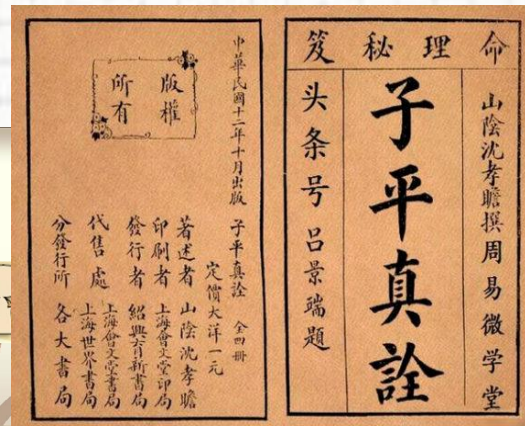 命理秘笈
山陰沈孝瞻撰周易微学堂
子平真詮
头条号吕景端題
中華民國十二年十月出版
版權
所有
子平真詮 全四册
定價大洋一元
著述者 山陰沈孝瞻
印刷者 上海會文堂印局
發行者 紹興育新書局
代售處 上海會文堂書局
上海世界書局
分發行所 各大書局